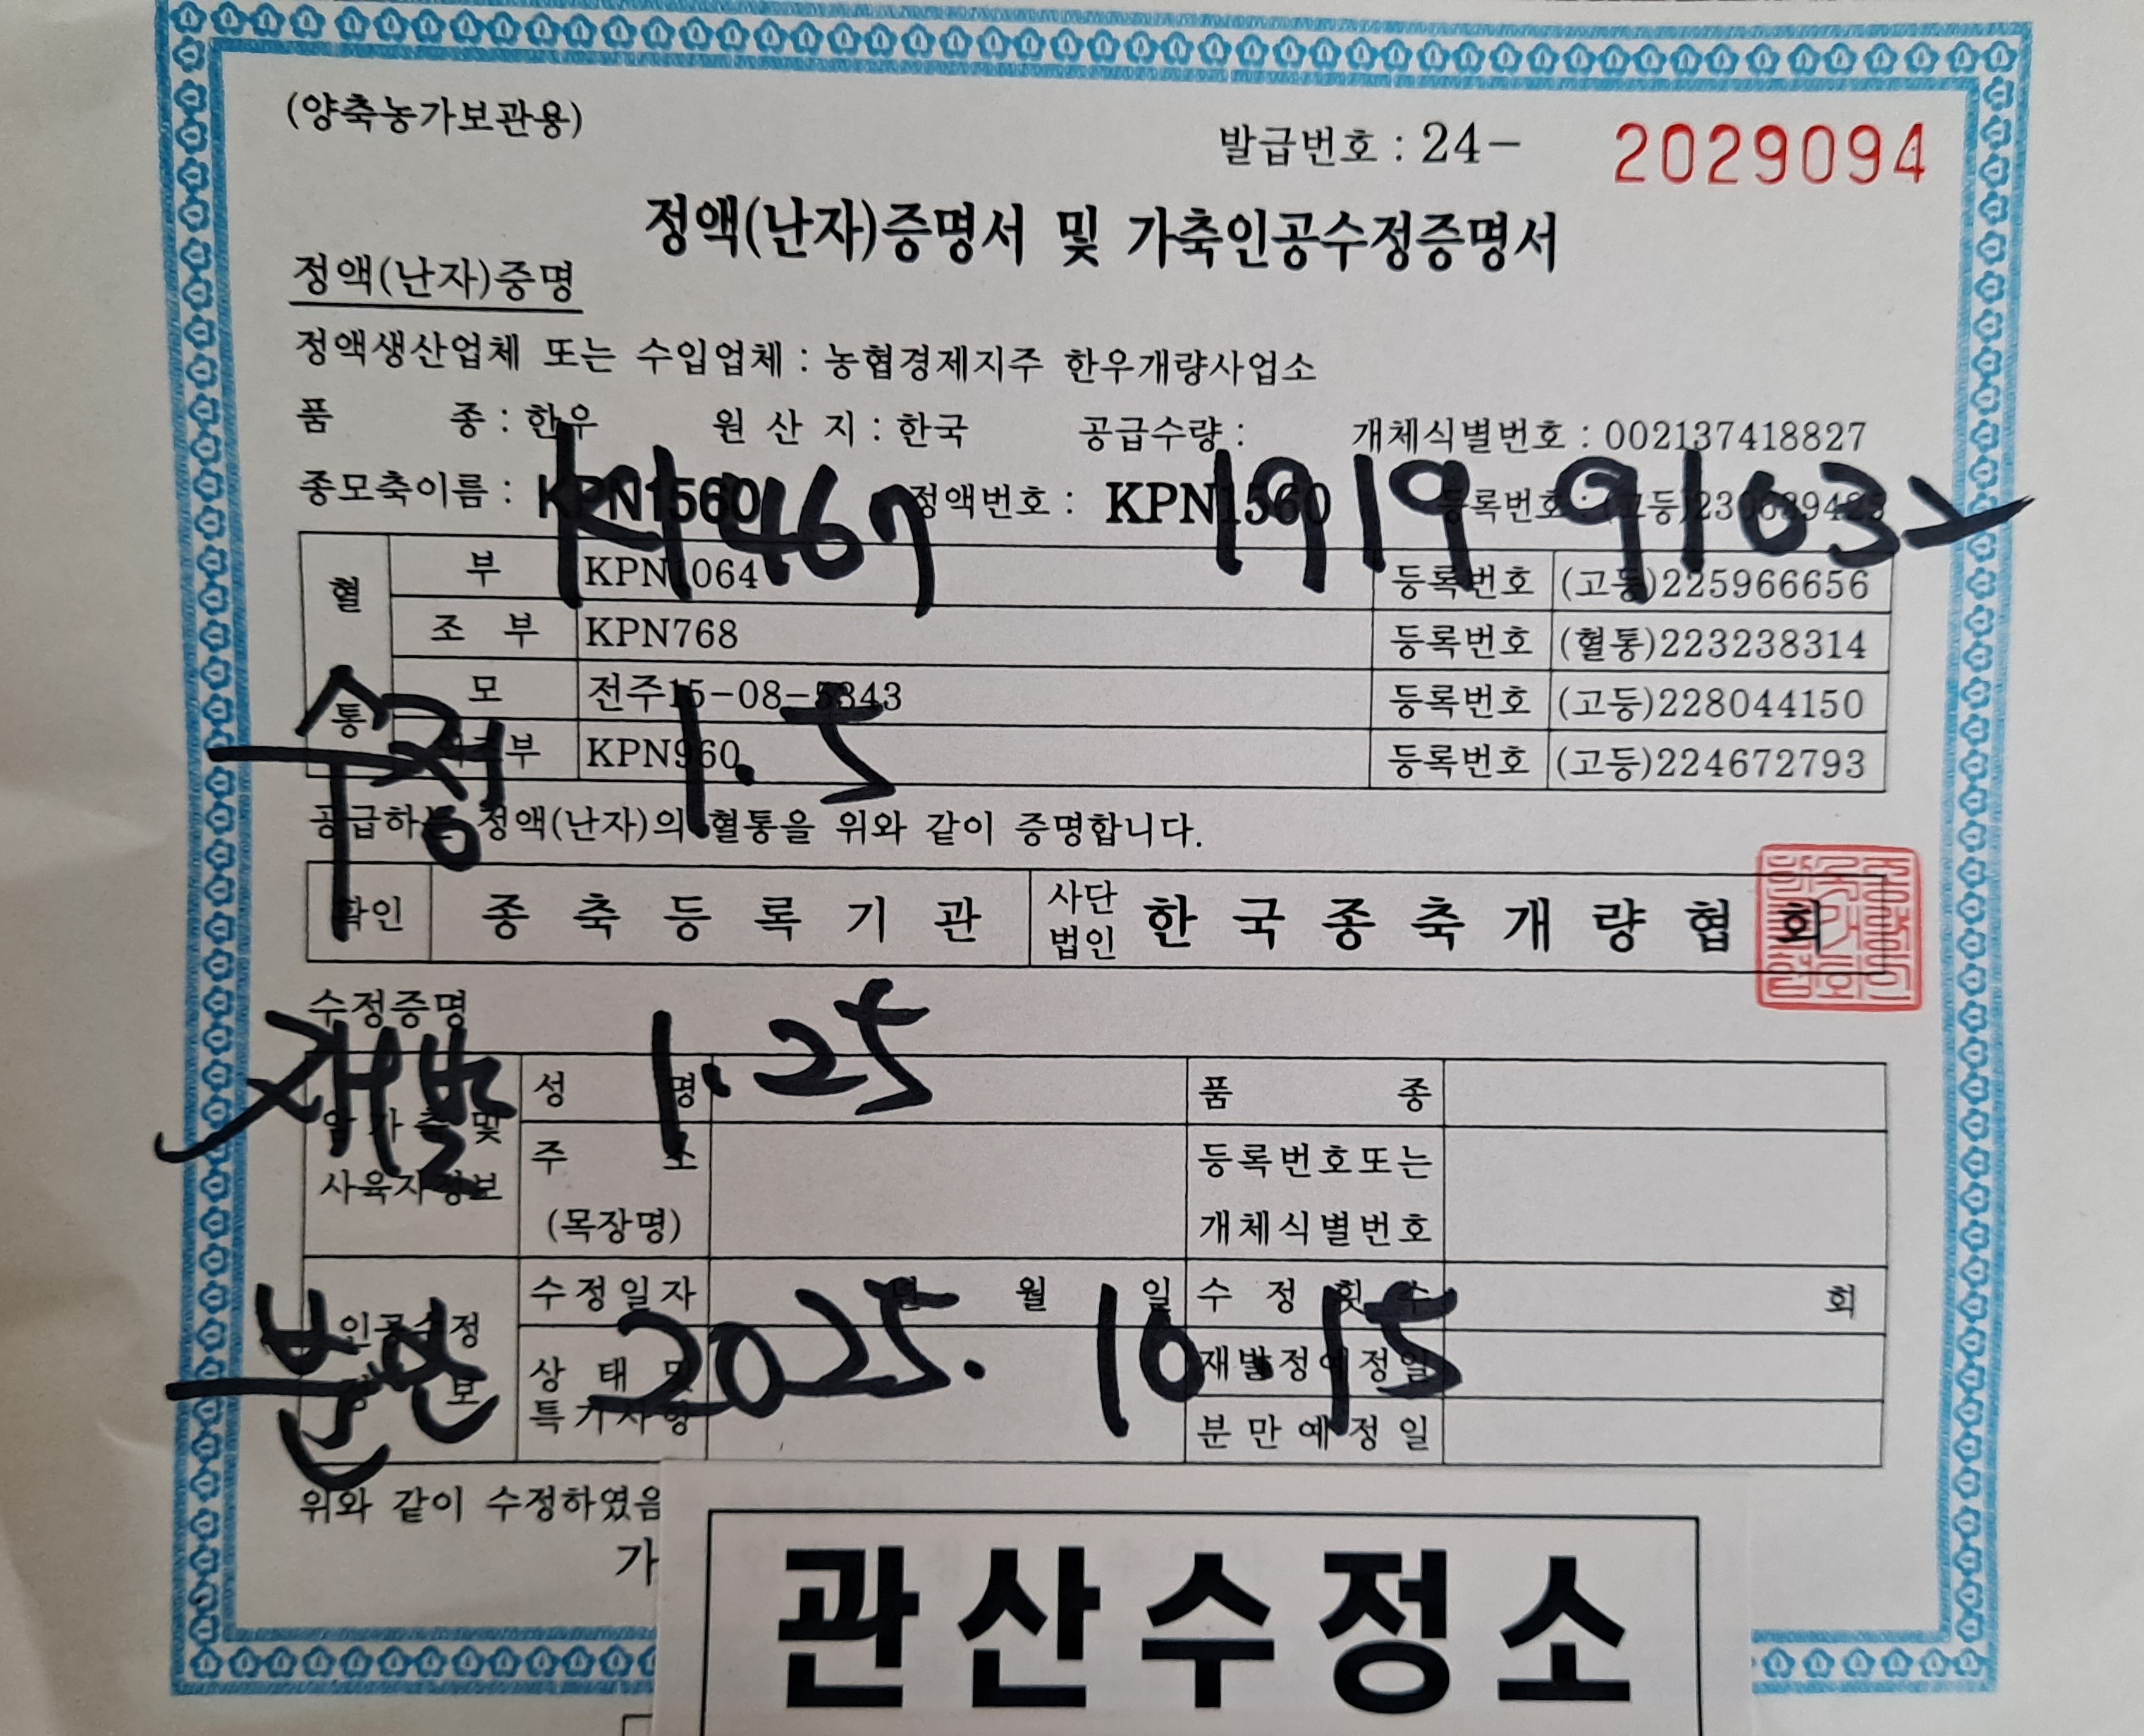 (양축농가보관용)
발급번호 : 24- 2029094
정액(난자)증명서 및 가축인공수정증명서
정액(난자)증명
정액생산업체 또는 수입업체 : 농협경제지주 한우개량사업소
품 종 : 한우 원 산 지 : 한국 공급수량 : 개체식별번호 : 002137418827
종모축이름 : KPN1560 정액번호 : KPN1560 등록번호 : (고등)
467 1919 91032
혈통 부 KPN1064 등록번호 (고등)225966656
조 부 KPN768 등록번호 (혈통)223238314
모 전주15-08-5343 등록번호 (고등)228044150
외조부 KPN960 등록번호 (고등)224672793
수정 1.5
공급하는 정액(난자)의 혈통을 위와 같이 증명합니다.
확인 종축등록기관 사단법인 한국종축개량협회
수정증명
재발 1.25
암가축 및 사육자정보 성 명 품 종
주 소 (목장명) 등록번호또는 개체식별번호
인공수정 정보 수정일자 년 월 일 수정횟수 회
상태 및 특기사항 재발정예정일
분만예정일
분만 2025. 10. 15
위와 같이 수정하였음
가
관산수정소